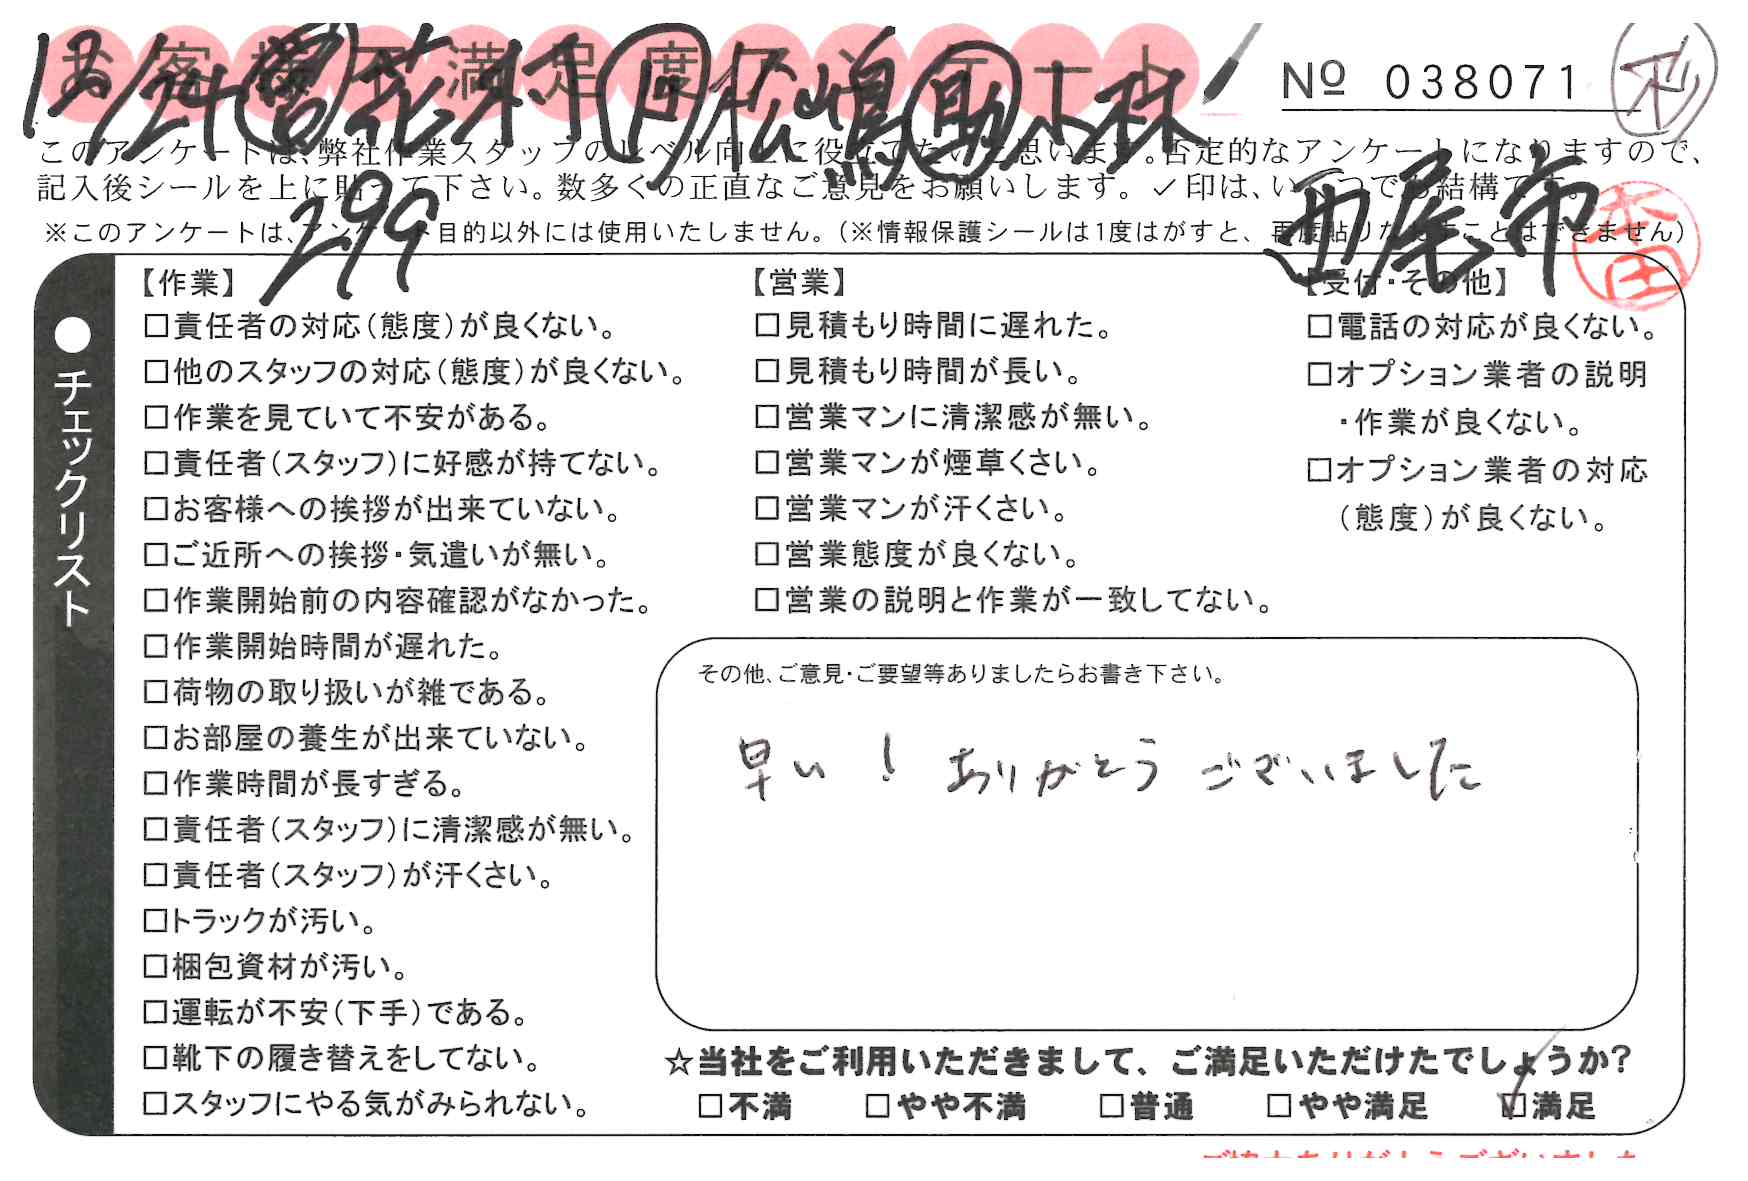 お客様満足度アンケート
12/24 営 花村 作 松嶋 助 小林
No 038071
このアンケートは、弊社作業スタッフのレベル向上に役立てたいと思います。否定的なアンケートになりますので、
記入後シールを上に貼って下さい。数多くの正直なご意見をお願いします。✓印は、いくつでも結構です。
299
西尾市
※このアンケートは、アンケート目的以外には使用いたしません。(※情報保護シールは1度はがすと、再度貼りなおすことはできません)
●チェックリスト
【作業】
□責任者の対応(態度)が良くない。
□他のスタッフの対応(態度)が良くない。
□作業を見ていて不安がある。
□責任者(スタッフ)に好感が持てない。
□お客様への挨拶が出来ていない。
□ご近所への挨拶・気遣いが無い。
□作業開始前の内容確認がなかった。
□作業開始時間が遅れた。
□荷物の取り扱いが雑である。
□お部屋の養生が出来ていない。
□作業時間が長すぎる。
□責任者(スタッフ)に清潔感が無い。
□責任者(スタッフ)が汗くさい。
□トラックが汚い。
□梱包資材が汚い。
□運転が不安(下手)である。
□靴下の履き替えをしてない。
□スタッフにやる気がみられない。
【営業】
□見積もり時間に遅れた。
□見積もり時間が長い。
□営業マンに清潔感が無い。
□営業マンが煙草くさい。
□営業マンが汗くさい。
□営業態度が良くない。
□営業の説明と作業が一致してない。
【受付・その他】
□電話の対応が良くない。
□オプション業者の説明
・作業が良くない。
□オプション業者の対応
(態度)が良くない。
その他、ご意見・ご要望等ありましたらお書き下さい。
早い! ありがとうございました
☆当社をご利用いただきまして、ご満足いただけたでしょうか?
□不満 □やや不満 □普通 □やや満足 ☑満足